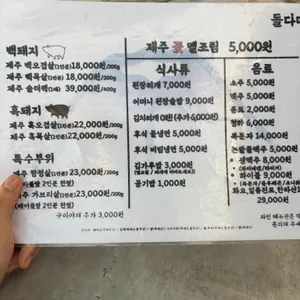 돌다
백돼지
제주 백오겹살(1인분)18,000원/200g
제주 백목살(1인분)18,000원/200g
제주 숄더랙(1대) 39,000원/400g
흑돼지
제주 흑오겹살(1인분)22,000원/200g
제주 흑목살(1인분)22,000원/200g
특수부위
제주 항정살(1인분)23,000원/200g
(테이블당 2인분 한정)
제주 가브리살(1인분)23,000원/200g
(테이블당 2인분 한정)
구이야채 추가 3,000원
제주 꽃멜조림 5,000원
식사류
된장찌개 7,000원
어머니 된장술밥 9,000원
김치찌개 0원(추가 6,000원)
후식 물냉면 5,000원
후식 비빔냉면 5,000원
김가루밥 3,000원
공기밥 1,000원
음료
소주 5,000원
맥주 5,000원
음료 2,000원
청하 6,000원
복분자 14,000원
논알콜맥주 5,000원
생맥주 8,000원
하이볼 9,000원
화요,일품진로,한라산
29,000원
와인 메뉴판은